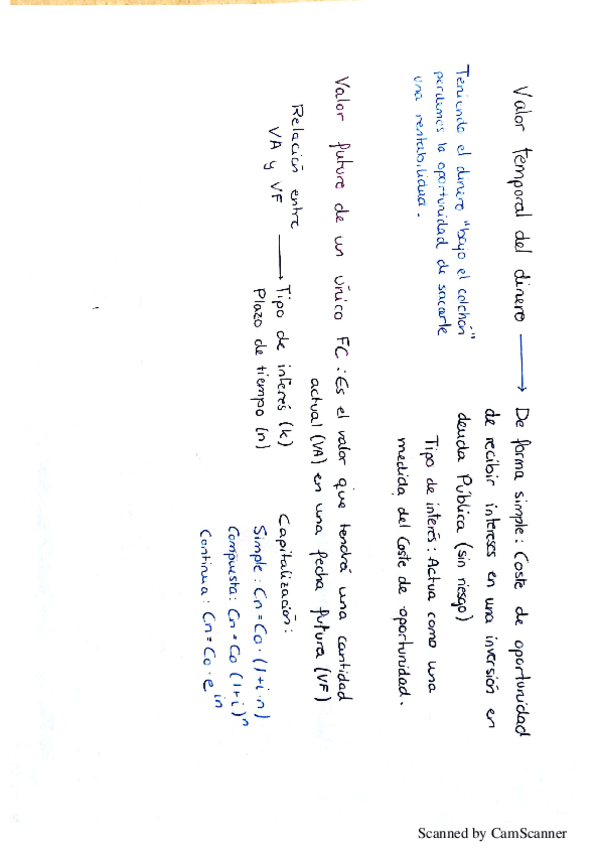 Valor temporal del dinero → De forma simple: Coste de oportunidad
de recibir intereses en una inversión en
deuda Pública (sin riesgo)
Teniendo el dinero "bajo el colchón"
perdemos la oportunidad de sacarle
una rentabilidad.
Tipo de interés: Actua como una
medida del Coste de oportunidad.
Valor futuro de un único FC: Es el valor que tendrá una cantidad
actual (VA) en una fecha futura (VF)
Relación entre
VA y VF → Tipo de interés (k)
Plazo de tiempo (n)
Capitalización:
Simple: Cn = Co · (1+i·n)
Compuesta: Cn = Co (1+i)^n
Continua: Cn = Co · e^in
Scanned by CamScanner